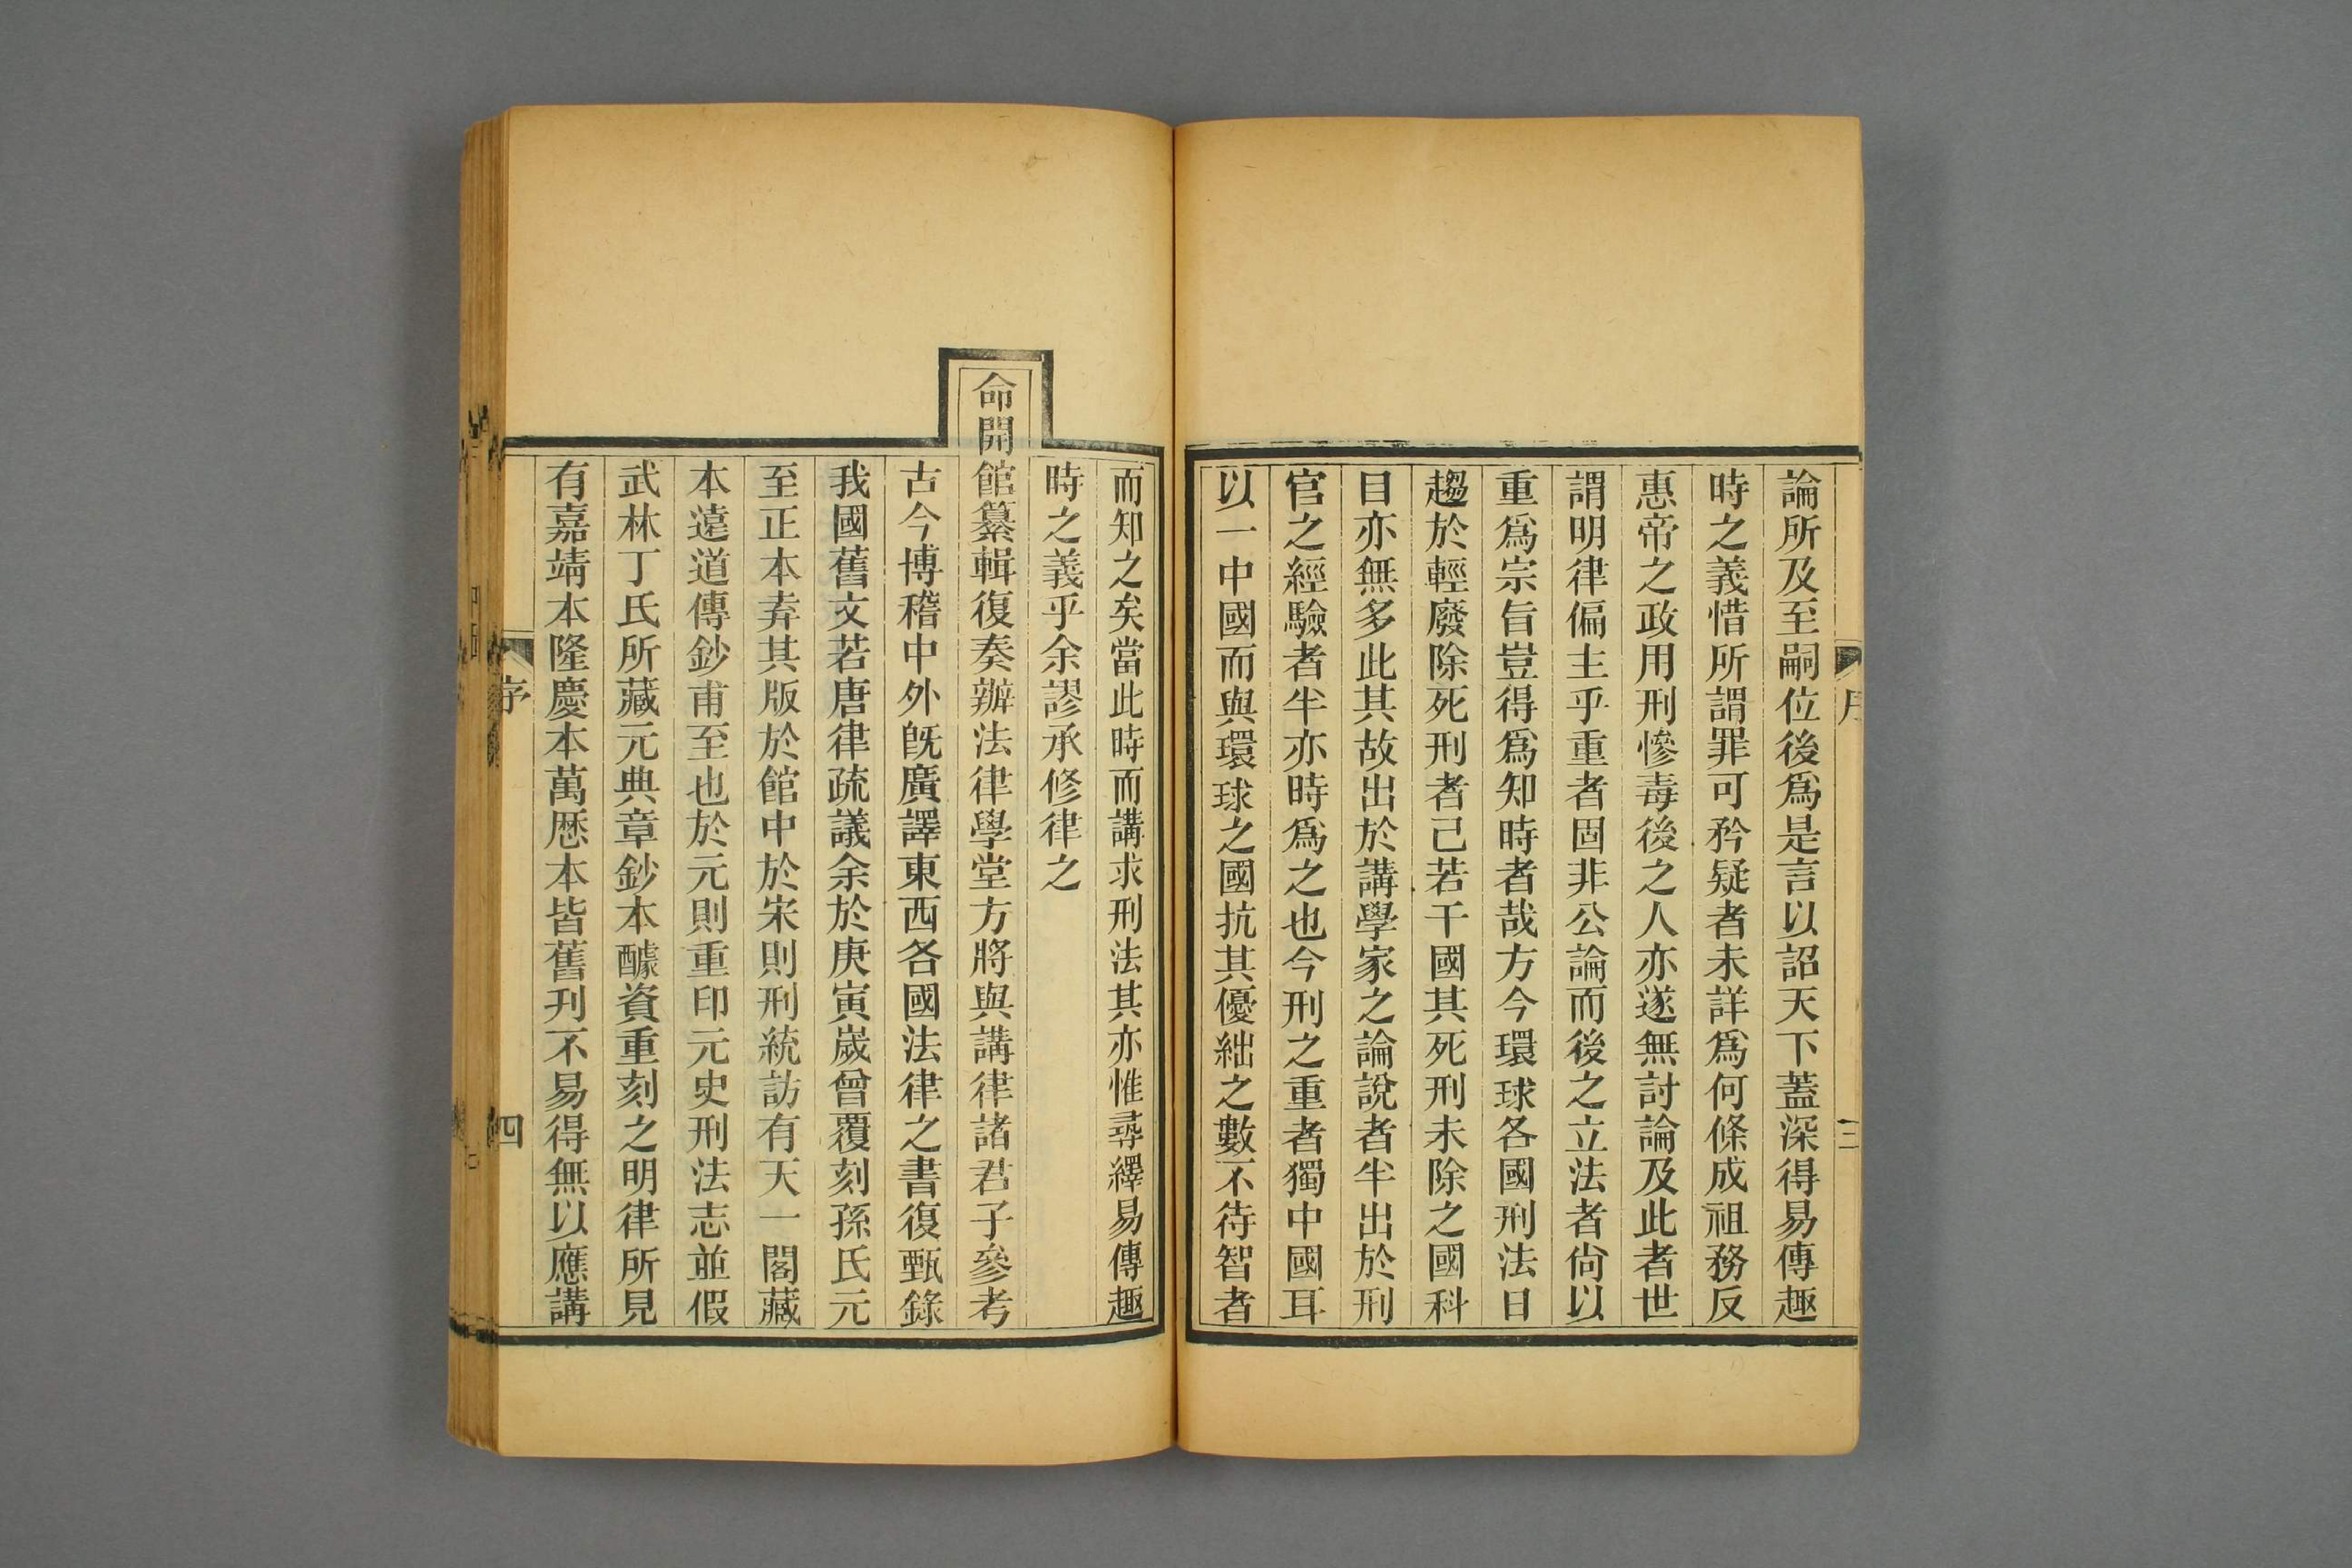 論所及至嗣位後爲是言以詔天下蓋深得易傳趣
時之義惜所謂罪可矜疑者未詳爲何條成祖務反
惠帝之政用刑慘毒後之人亦遂無討論及此者世
謂明律偏主乎重者固非公論而後之立法者尙以
重爲宗旨豈得爲知時者哉方今環球各國刑法日
趨於輕廢除死刑者己若干國其死刑未除之國科
目亦無多此其故出於講學家之論說者半出於刑
官之經驗者半亦時爲之也今刑之重者獨中國耳
以一中國而與環球之國抗其優絀之數不待智者
而知之矣當此時而講求刑法其亦惟尋繹易傳趣
時之義乎余謬承修律之
命開館纂輯復奏辦法律學堂方將與講律諸君子參考
古今博稽中外旣廣譯東西各國法律之書復甄錄
我國舊文若唐律疏議余於庚寅歲曾覆刻孫氏元
至正本弆其版於館中於宋則刑統訪有天一閣藏
本遠道傳鈔甫至也於元則重印元史刑法志並假
武林丁氏所藏元典章鈔本醵資重刻之明律所見
有嘉靖本隆慶本萬厯本皆舊刋不易得無以應講
序
四